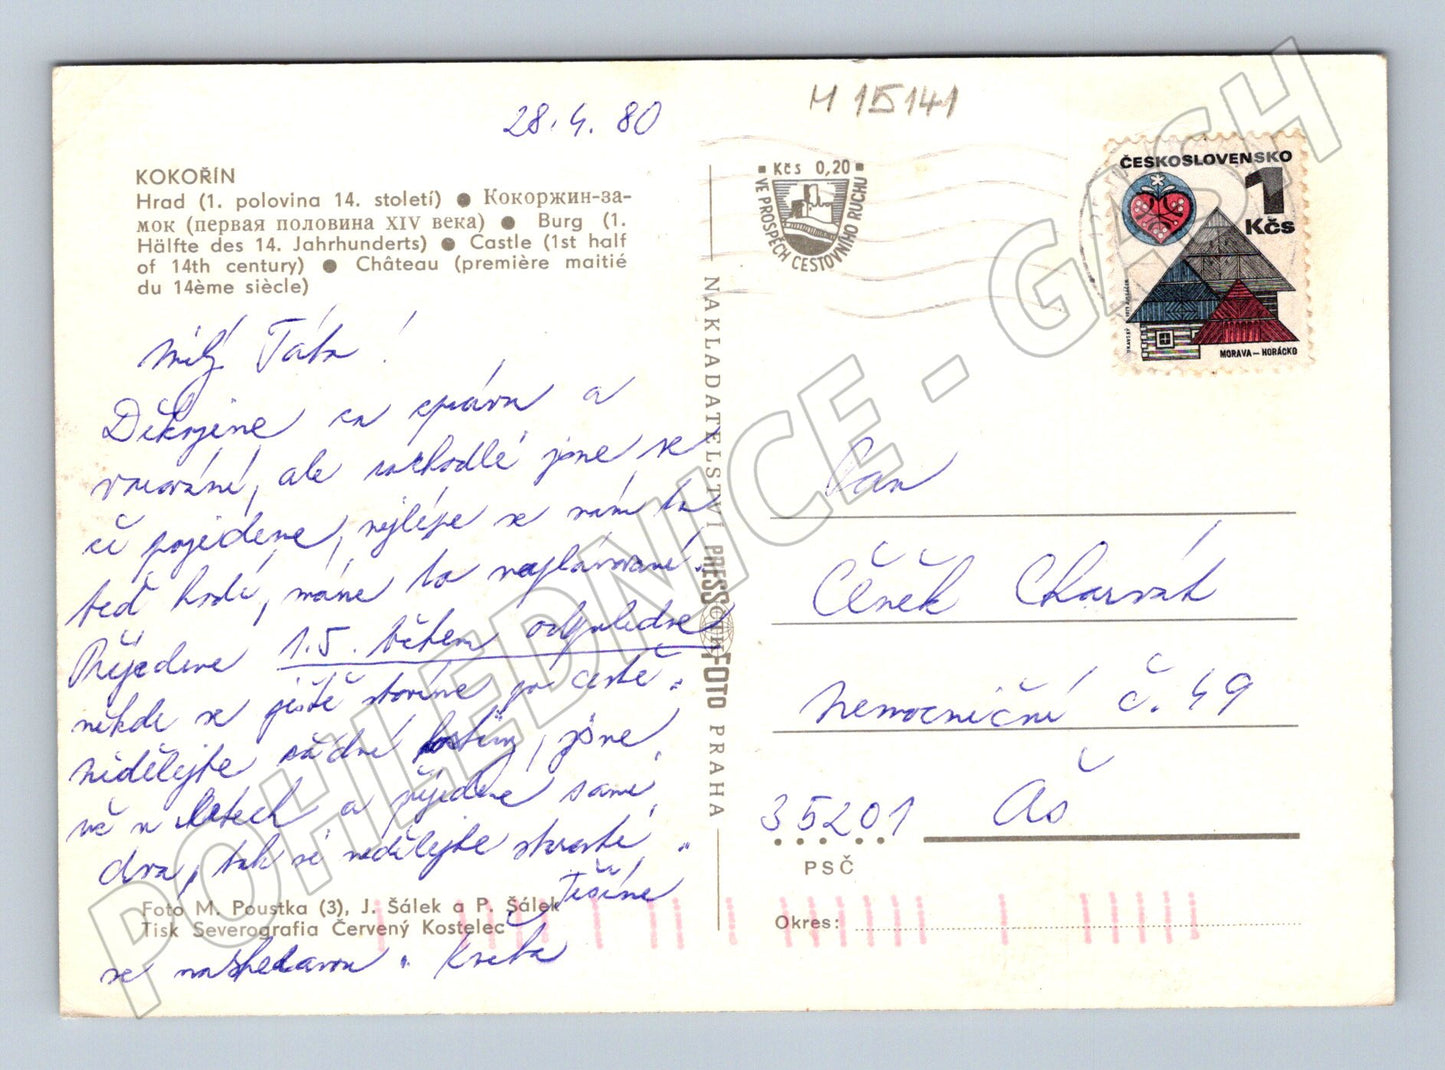 28.4.80
M 15141
KOKOŘÍN
Hrad (1. polovina 14. století) ● Кокоржин-за-
мок (первая половина XIV века) ● Burg (1.
Hälfte des 14. Jahrhunderts) ● Castle (1st half
of 14th century) ● Château (première maitié
du 14ème siècle)
Milý Táto!
Děkujeme za zprávu a
varování, ale rozhodli jsme se
že pojedeme, nejlépe se nám to
teď hodí, máme to naplánované.
Přijedeme 1.5. během odpoledne
někde se ještě stavíme po cestě.
Nidělejte žádné jsme
už v letech a přijedeme sami
dva, tak si nedělejte starosti.
Těšíme
se na shledanou. Květa
Foto M. Poustka (3), J. Šálek a P. Šálek
Tisk Severografia Červený Kostelec
NAKLADATELSTVÍ PRESSFOTO PRAHA
ČTK
Kčs 0,20
VE PROSPĚCH CESTOVNÍHO RUCHU
ČESKOSLOVENSKO
1
Kčs
MORAVA – HORÁCKO
Pan
Čeněk Charvát
Nemocniční č. 49
35201 Aš
PSČ
Okres:
POHLEDNICE - GASH